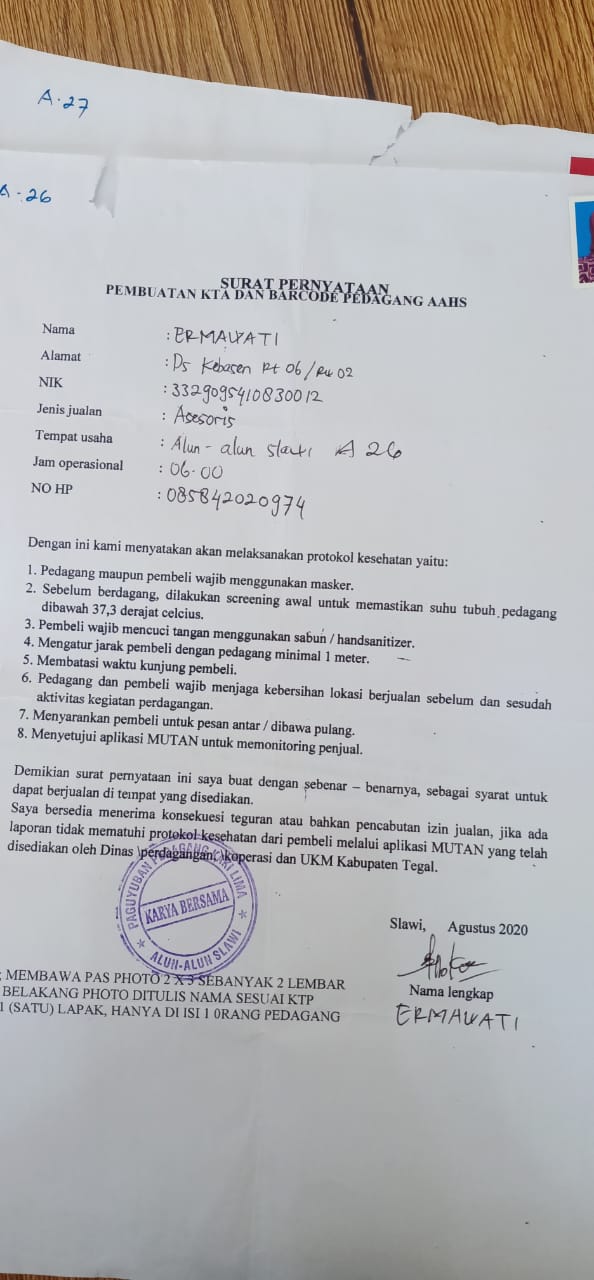 A.27
A.26
SURAT PERNYATAAN
PEMBUATAN KTA DAN BARCODE PEDAGANG AAHS
Nama : ERMAWATI
Alamat : Ds Kebasen Rt 06/Rw 02
NIK : 3329095410830012
Jenis jualan : Asesoris
Tempat usaha : Alun-alun slawi A 26
Jam operasional : 06.00
NO HP : 085842020974
Dengan ini kami menyatakan akan melaksanakan protokol kesehatan yaitu:
1. Pedagang maupun pembeli wajib menggunakan masker.
2. Sebelum berdagang, dilakukan screening awal untuk memastikan suhu tubuh pedagang
dibawah 37,3 derajat celcius.
3. Pembeli wajib mencuci tangan menggunakan sabun / handsanitizer.
4. Mengatur jarak pembeli dengan pedagang minimal 1 meter.
5. Membatasi waktu kunjung pembeli.
6. Pedagang dan pembeli wajib menjaga kebersihan lokasi berjualan sebelum dan sesudah
aktivitas kegiatan perdagangan.
7. Menyarankan pembeli untuk pesan antar / dibawa pulang.
8. Menyetujui aplikasi MUTAN untuk memonitoring penjual.
Demikian surat pernyataan ini saya buat dengan sebenar – benarnya, sebagai syarat untuk
dapat berjualan di tempat yang disediakan.
Saya bersedia menerima konsekuesi teguran atau bahkan pencabutan izin jualan, jika ada
laporan tidak mematuhi protokol kesehatan dari pembeli melalui aplikasi MUTAN yang telah
disediakan oleh Dinas \perdagangan, \koperasi dan UKM Kabupaten Tegal.
PAGUYUBAN PEDAGANG KAKI LIMA
KARYA BERSAMA
ALUN-ALUN SLAWI
Slawi, Agustus 2020
Nama lengkap
ERMAWATI
: MEMBAWA PAS PHOTO 2 X 3 SEBANYAK 2 LEMBAR
BELAKANG PHOTO DITULIS NAMA SESUAI KTP
1 (SATU) LAPAK, HANYA DI ISI 1 0RANG PEDAGANG